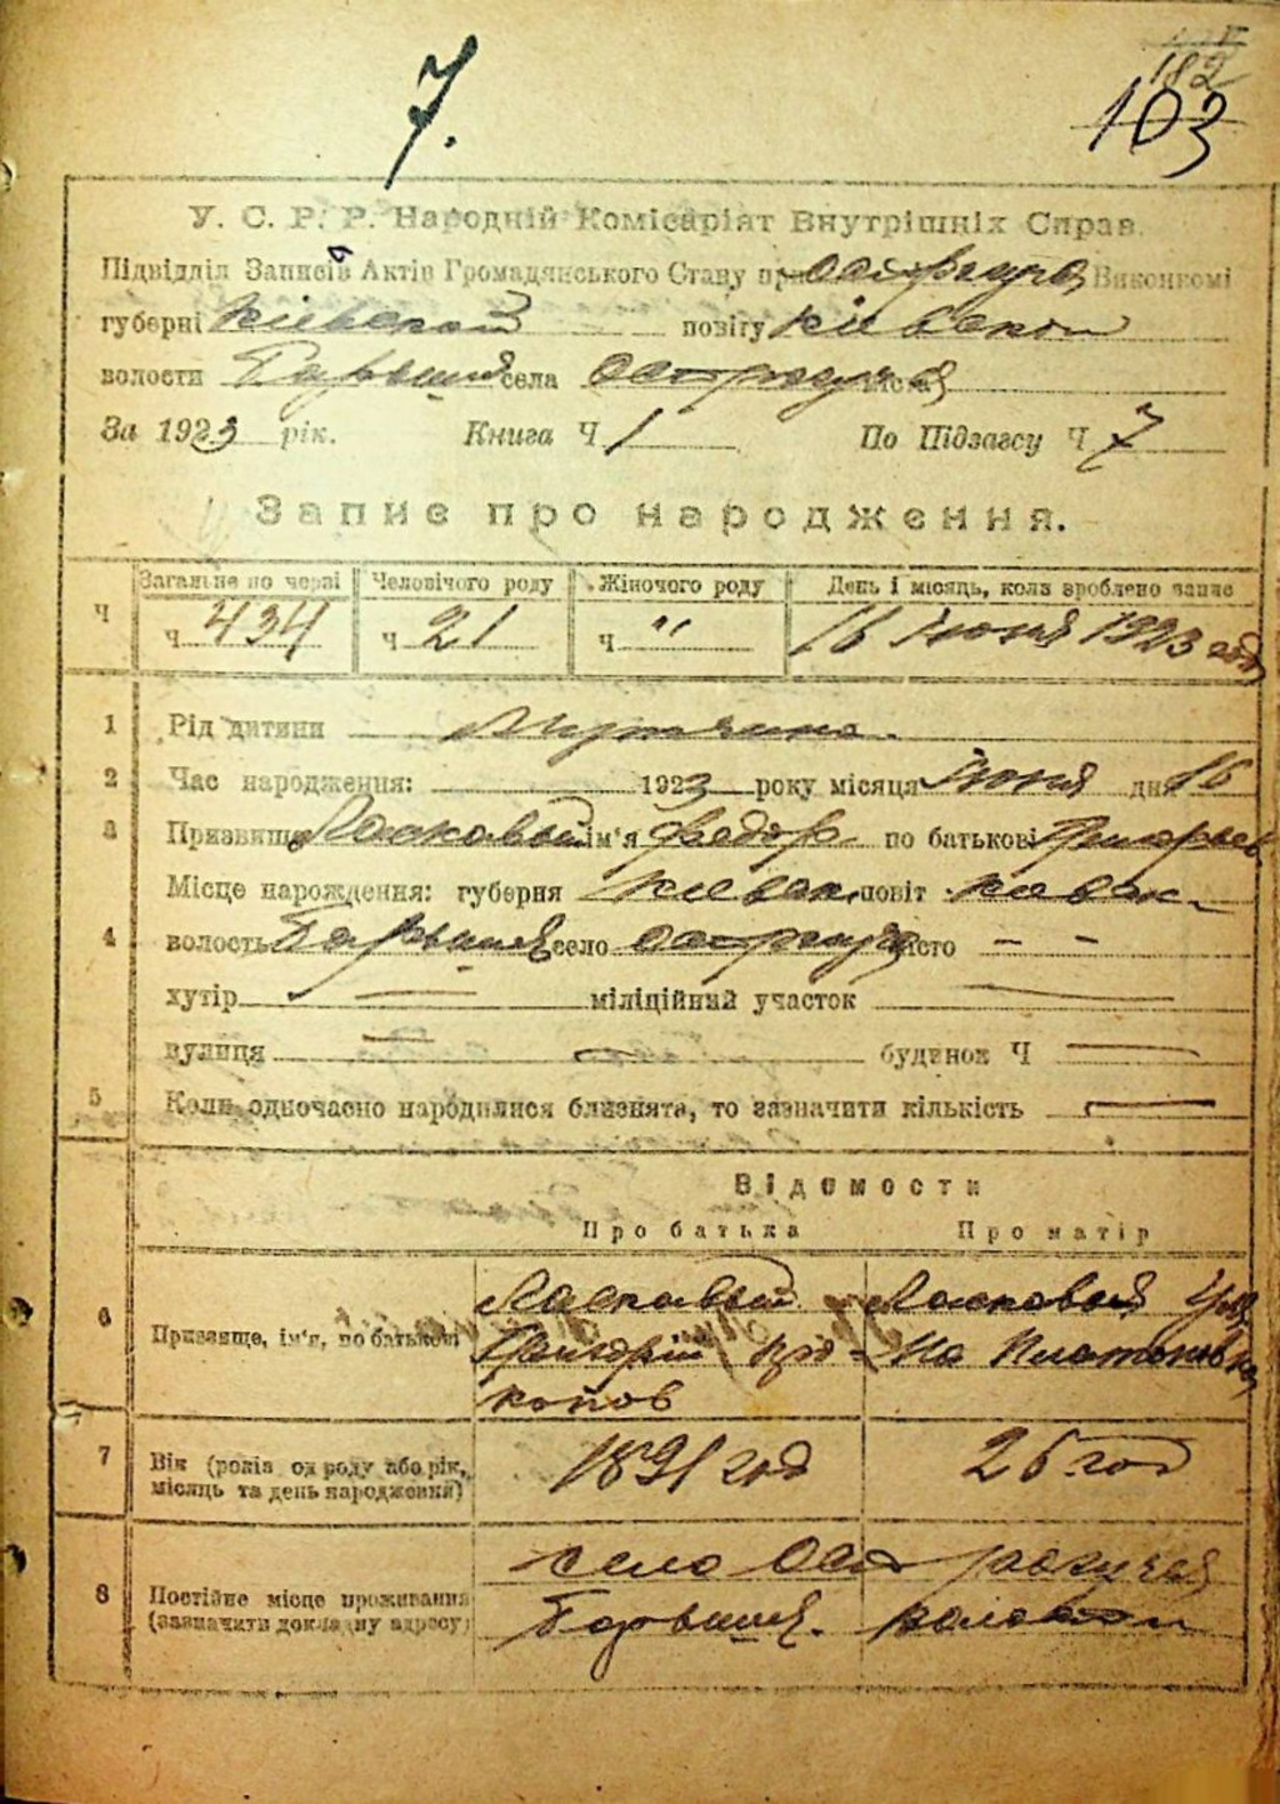 7.
182
103
У. С. Р. Р. Народній Комісаріят Внутрішніх Справ.
Підвідділ Записів Актів Громадянського Стану при Виконкомі
губерні Кіевской повіту Кіевской
волости села міста
За 1923 рік. Книга Ч 1 По Підзагсу Ч 7
Запис про народження.
Загальне по черзі Человічого роду Жіночого роду День і місяць, коли зроблено запис
Ч ч 434 ч 21 ч " 16 Июня 1923 год
1 Рід дитини Мужчина.
2 Час народження: 1923 року місяця Июня дня 16
3 Призвище Ласковый ім'я Федор по батькові Григорьев
Місце нарождення: губерня Киевск. повіт Киевск.
4 волость село місто - -
хутір — міліційний участок —
вулиця — будинок Ч —
5 Коли одночасно народилися близнята, то зазначити кількість —
Відомости
Про батька Про матір
6 Призвище, ім'я, по батькові
Ласковый Ласковая Уль
Григорий Про- на Платонов
копов
7 Вік (років од роду або рік, місяць та день народження) 1891 год 26 год
8 Постійне місце проживання (зазначити докладну адресу)
село
волости